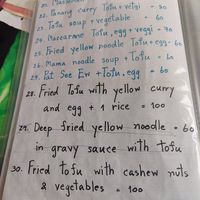 22. Panang curry Tofu + vetgi = 80
23. Tofu soup + vegetable 60
24. Maccarane Tofu, egg + veggi = 70
25. Fried yellow noodle Tofu + egg = 60
26. Mama noodle soup + Tofu = 60
27. Pat See Ew + Tofu, egg = 60
28. Fried Tofu with yellow curry
and egg + 1 rice = 100
29. Deep fried yellow noodle = 60
in gravy sauce with tofu
30. Fried tofu with cashew nuts
& vegetables = 100